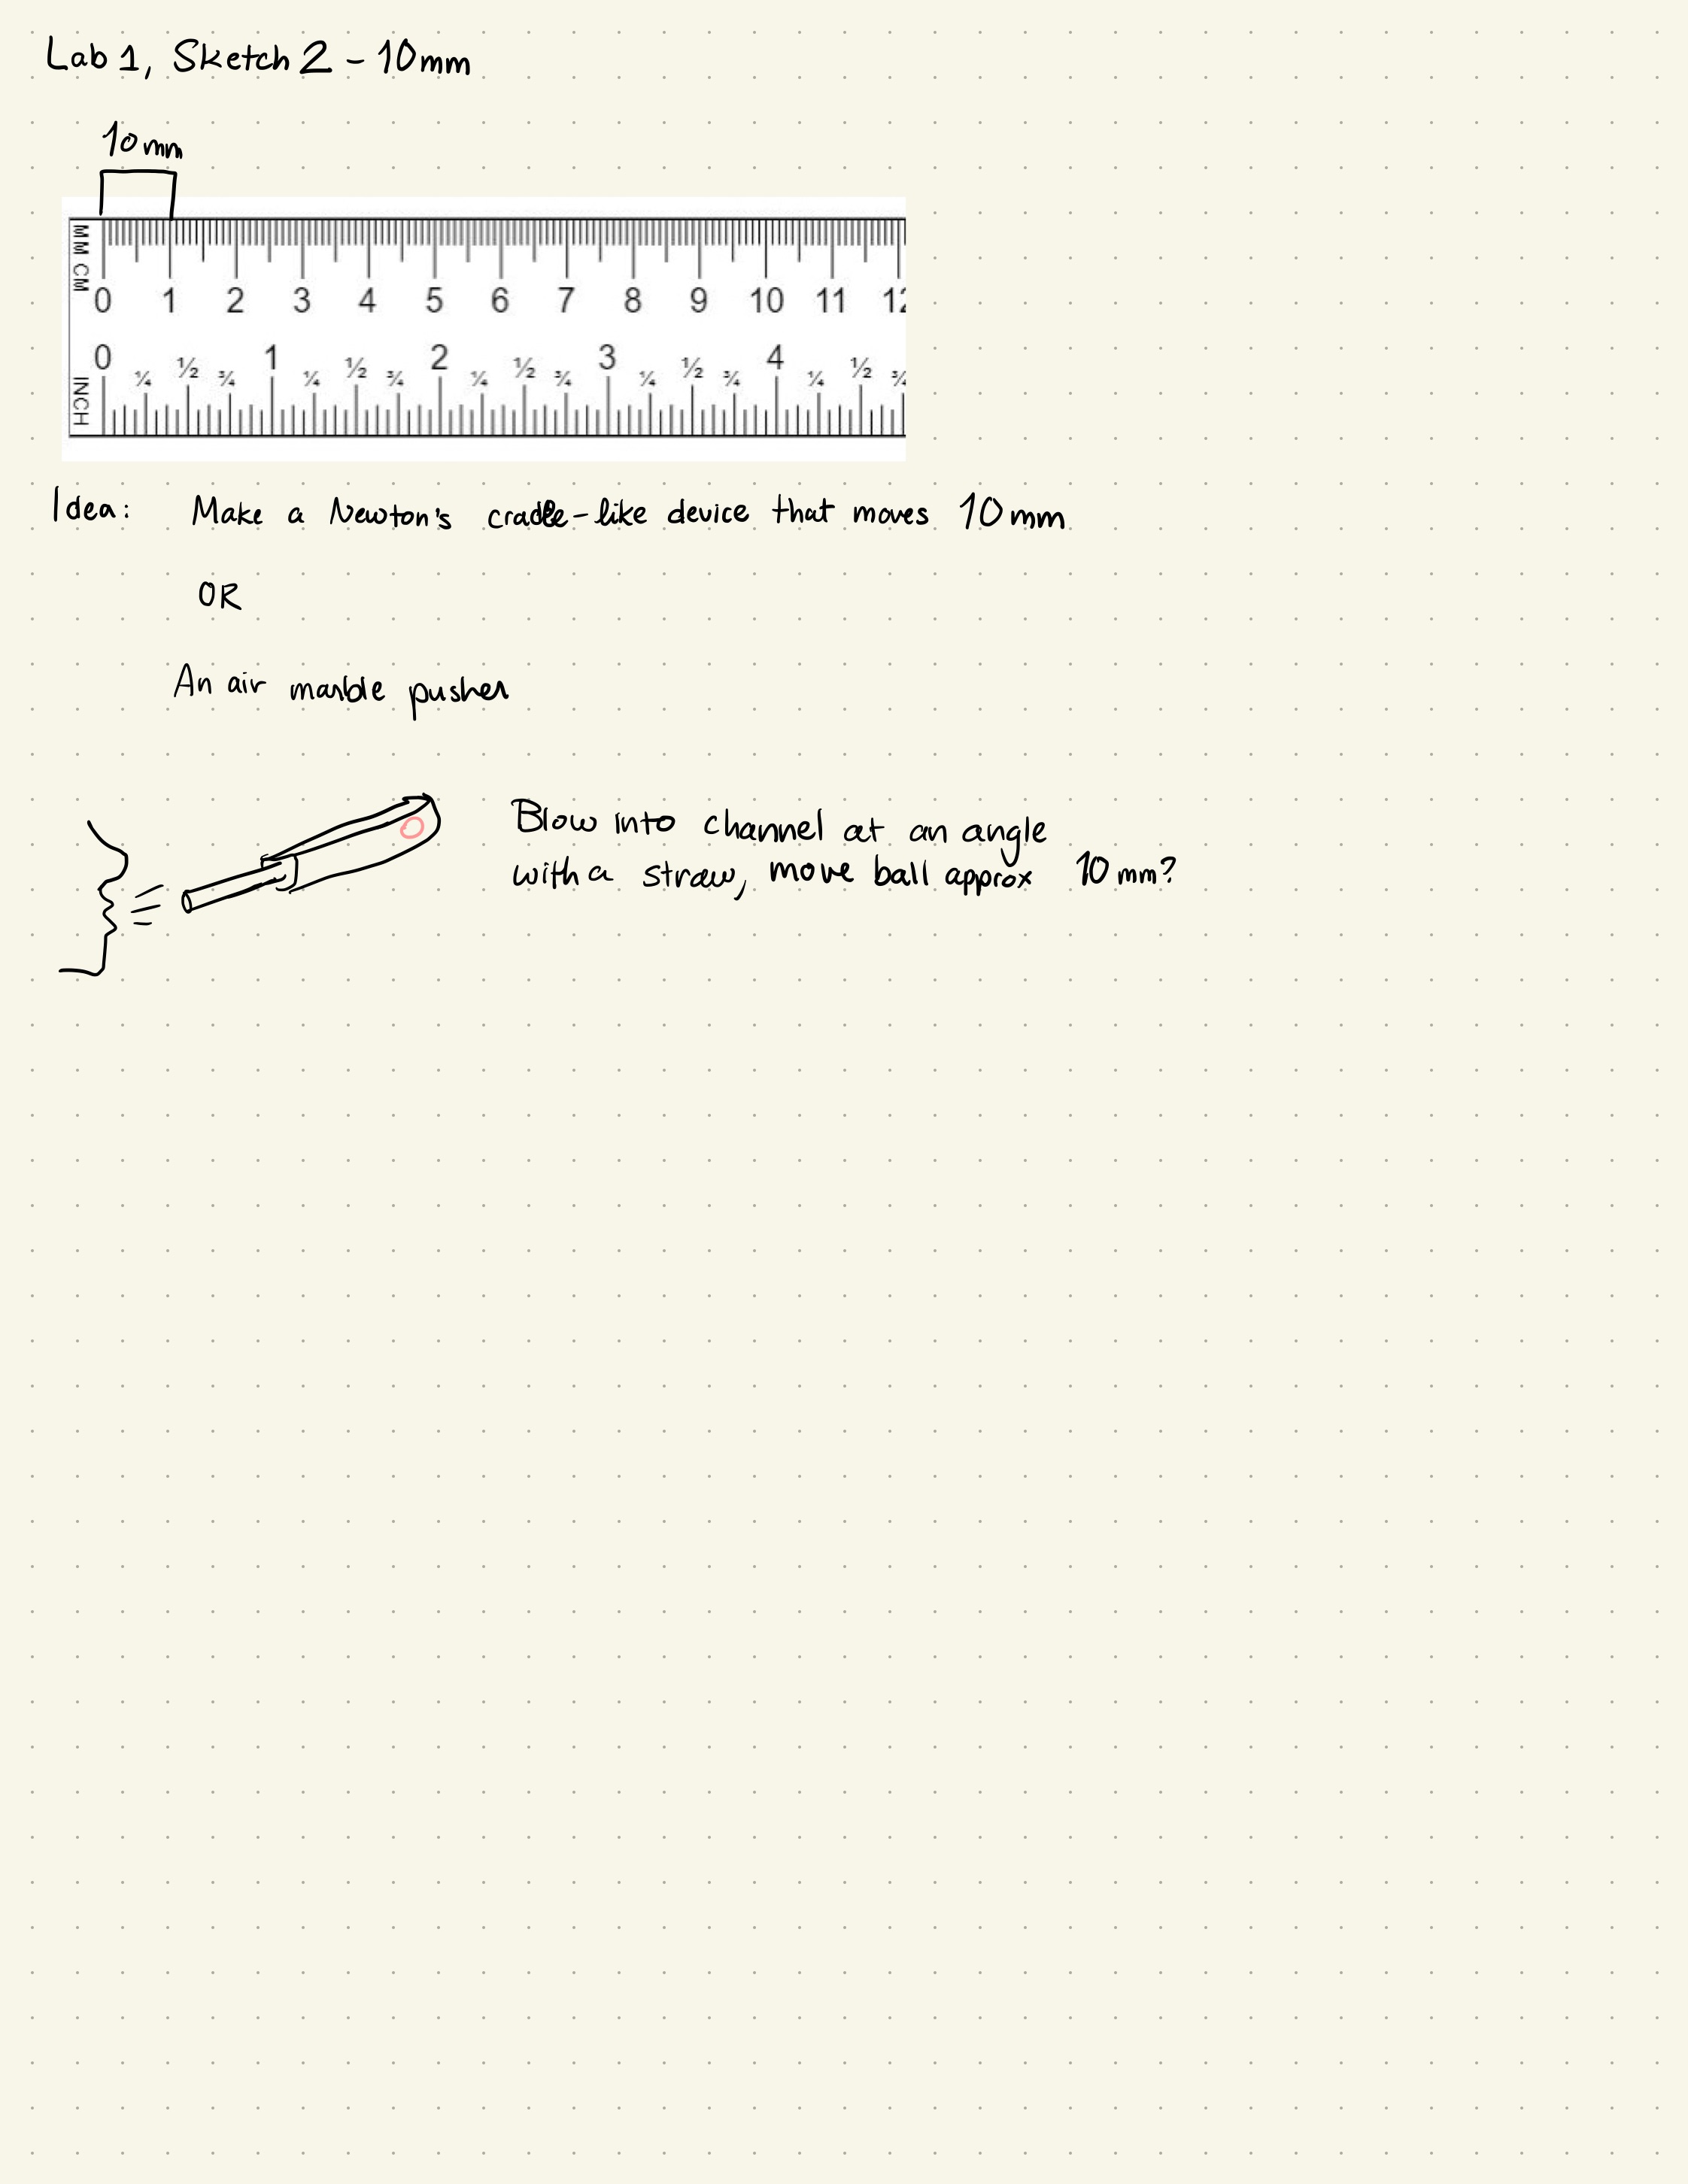 Lab 1, Sketch 2 - 10mm
10mm
MM CM
0 1 2 3 4 5 6 7 8 9 10 11 12
0 ¼ ½ ¾ 1 ¼ ½ ¾ 2 ¼ ½ ¾ 3 ¼ ½ ¾ 4 ¼ ½ ¾
INCH
Idea: Make a Newton's cradle-like device that moves 10mm
OR
An air marble pusher
Blow into channel at an angle
with a straw, move ball approx 10mm?